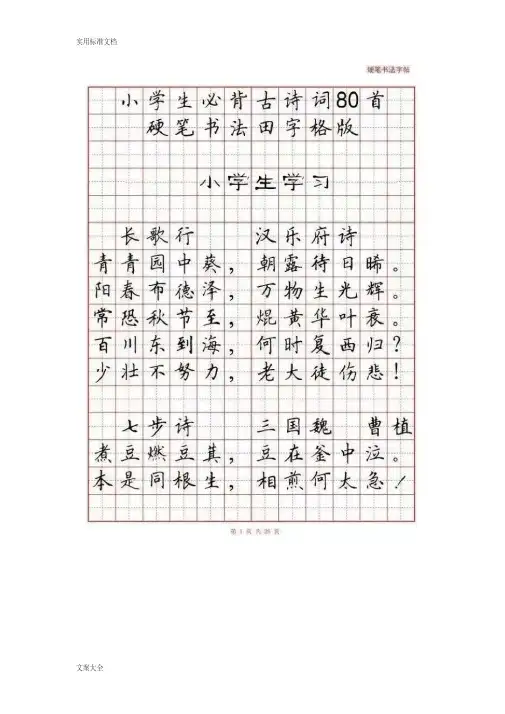 实用标准文档
硬笔书法字帖
小学生必背古诗词80首
硬笔书法田字格版
小学生学习
长歌行 汉乐府诗
青青园中葵，朝露待日晞。
阳春布德泽，万物生光辉。
常恐秋节至，焜黄华叶衰。
百川东到海，何时复西归？
少壮不努力，老大徒伤悲！
七步诗 三国魏 曹植
煮豆燃豆萁，豆在釜中泣。
本是同根生，相煎何太急！
文案大全